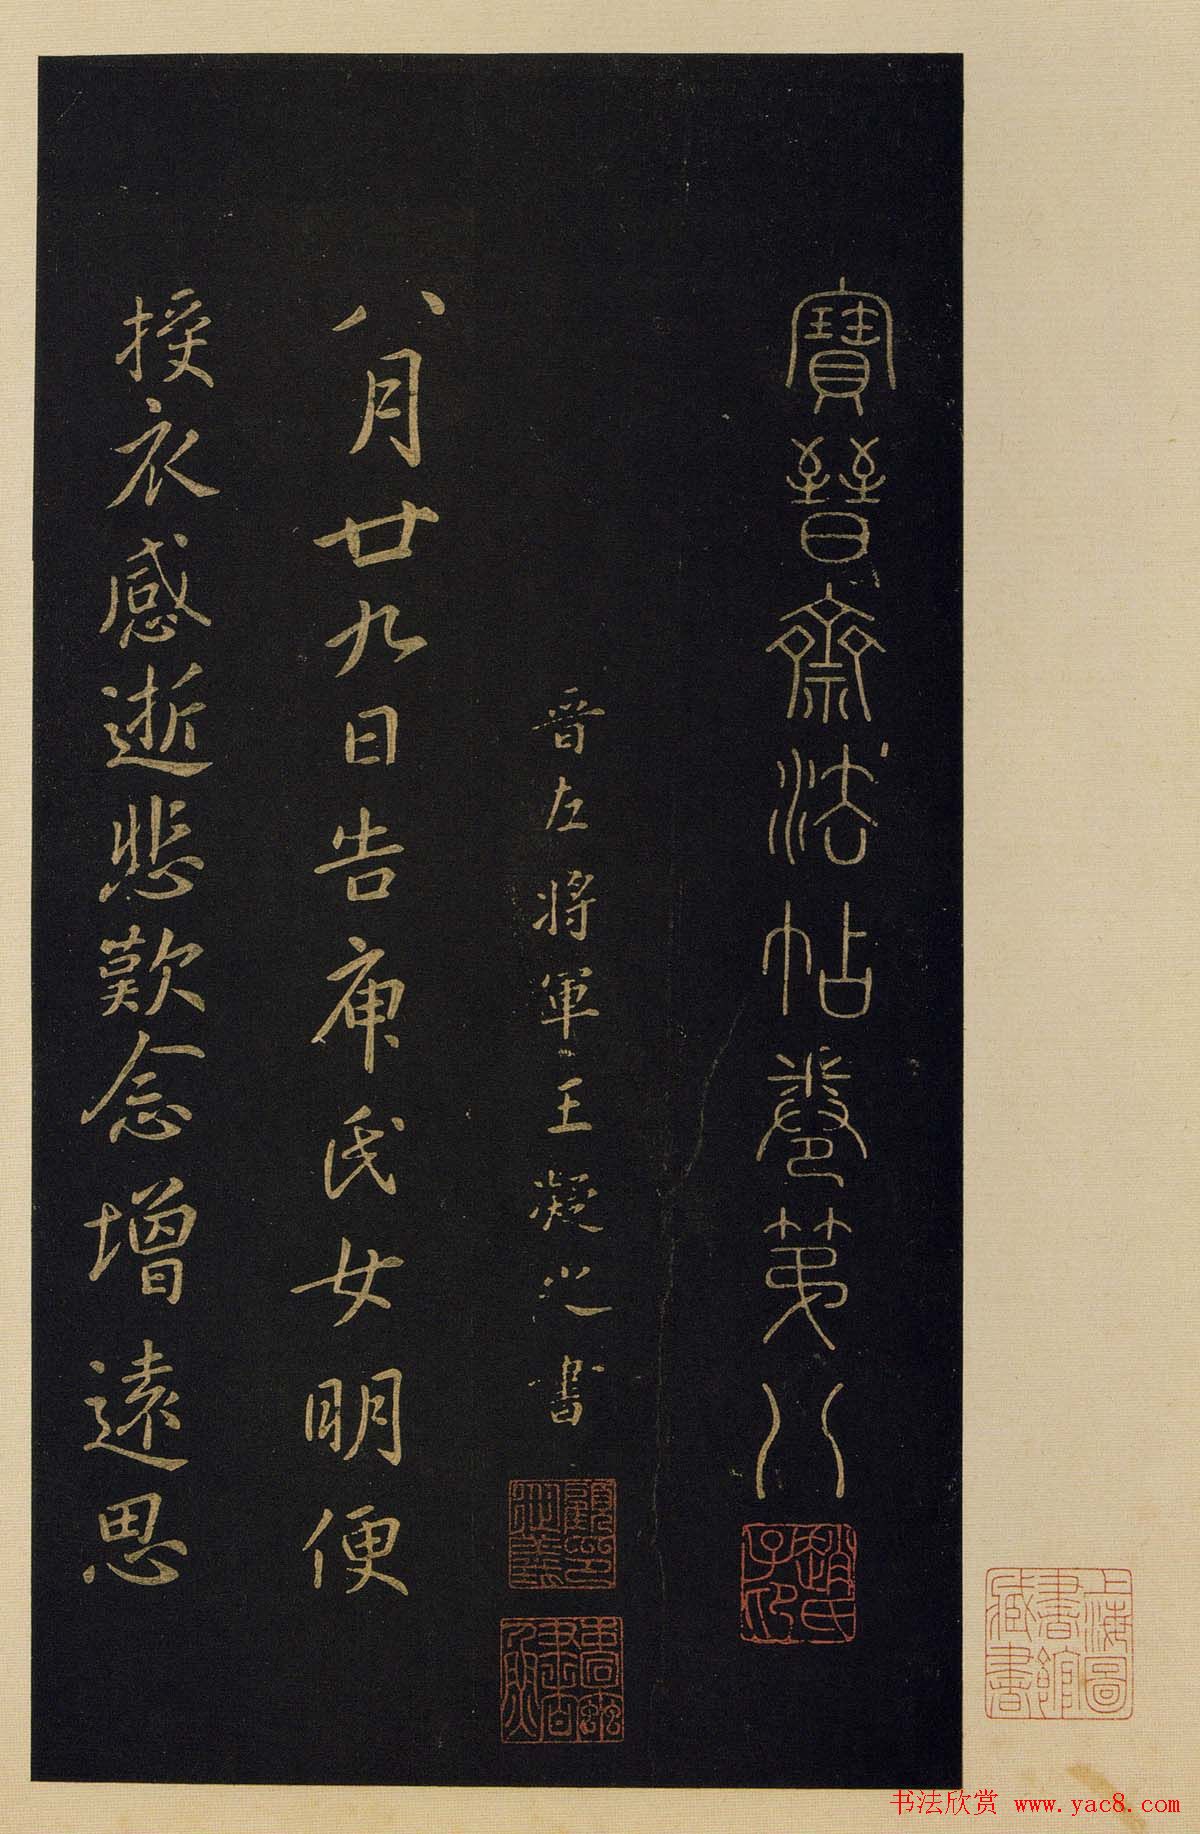 寶晉齋法帖卷第八
晉左將軍王凝之書
八月廿九日告庾氏女明便
授衣感逝悲歎念增遠思
趙氏子印
上海圖書館藏書
书法欣赏 www.yac8.com